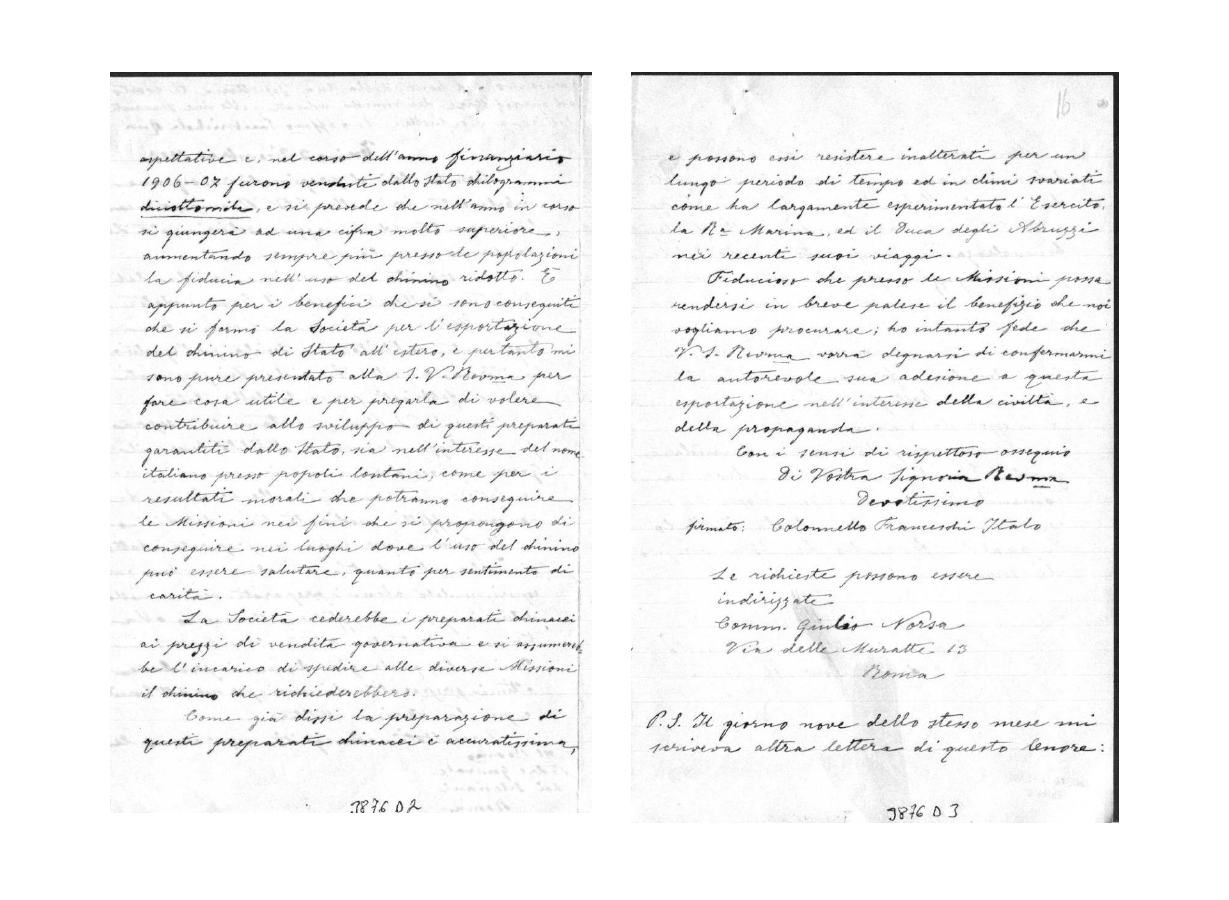 aspettative e, nel corso dell'anno finanziario
1906-07 furono vendute dallo Stato chilogrammi
diciottomila, e si prevede che nell'anno in corso
si giungerà ad una cifra molto superiore,
aumentando sempre più presso le popolazioni
la fiducia nell'uso del chinino ridotto. E
appunto per i benefici che si sono conseguiti
che si formò la Società per l'esportazione
del chinino di Stato all'estero, e pertanto mi
sono pure presentato alla S. V. Revma per
fare cosa utile e per pregarla di volere
contribuire allo sviluppo di questi preparati
garantiti dallo Stato, sia nell'interesse del nome
italiano presso popoli lontani, come per i
resultati morali che potranno conseguire
le Missioni nei fini che si propongono di
conseguire nei luoghi dove l'uso del chinino
può essere salutare, quanto per sentimento di
carità.
La Società cederebbe i preparati chinacei
ai prezzi di vendita governativa e si assumereb
be l'incarico di spedire alle diverse Missioni
il chinino che richiederebbero.
Come già dissi la preparazione di
questi preparati chinacei è accuratissima,
9876 D 2
16
e possono essi resistere inalterati per un
lungo periodo di tempo ed in climi svariati
come ha largamente esperimentato l'Esercito,
la Ra Marina, ed il Duca degli Abruzzi
nei recenti suoi viaggi.
Fiducioso che presso le Missioni possa
rendersi in breve palese il benefizio che noi
vogliamo procurare; ho intanto fede che
V. S. Revma vorrà degnarsi di confermarmi
la autorevole sua adesione a questa
esportazione nell'interesse della civiltà, e
della propaganda.
Con i sensi di rispettoso ossequio
Di Vostra Signoria Revma
Devotissimo
firmato: Colonnello Franceschi Italo
Le richieste possono essere
indirizzate
Comm. Giulio Norsa
Via delle Muratte 13
Roma
P. S. Il giorno nove dello stesso mese mi
scriveva altra lettera di questo tenore:
9876 D 3